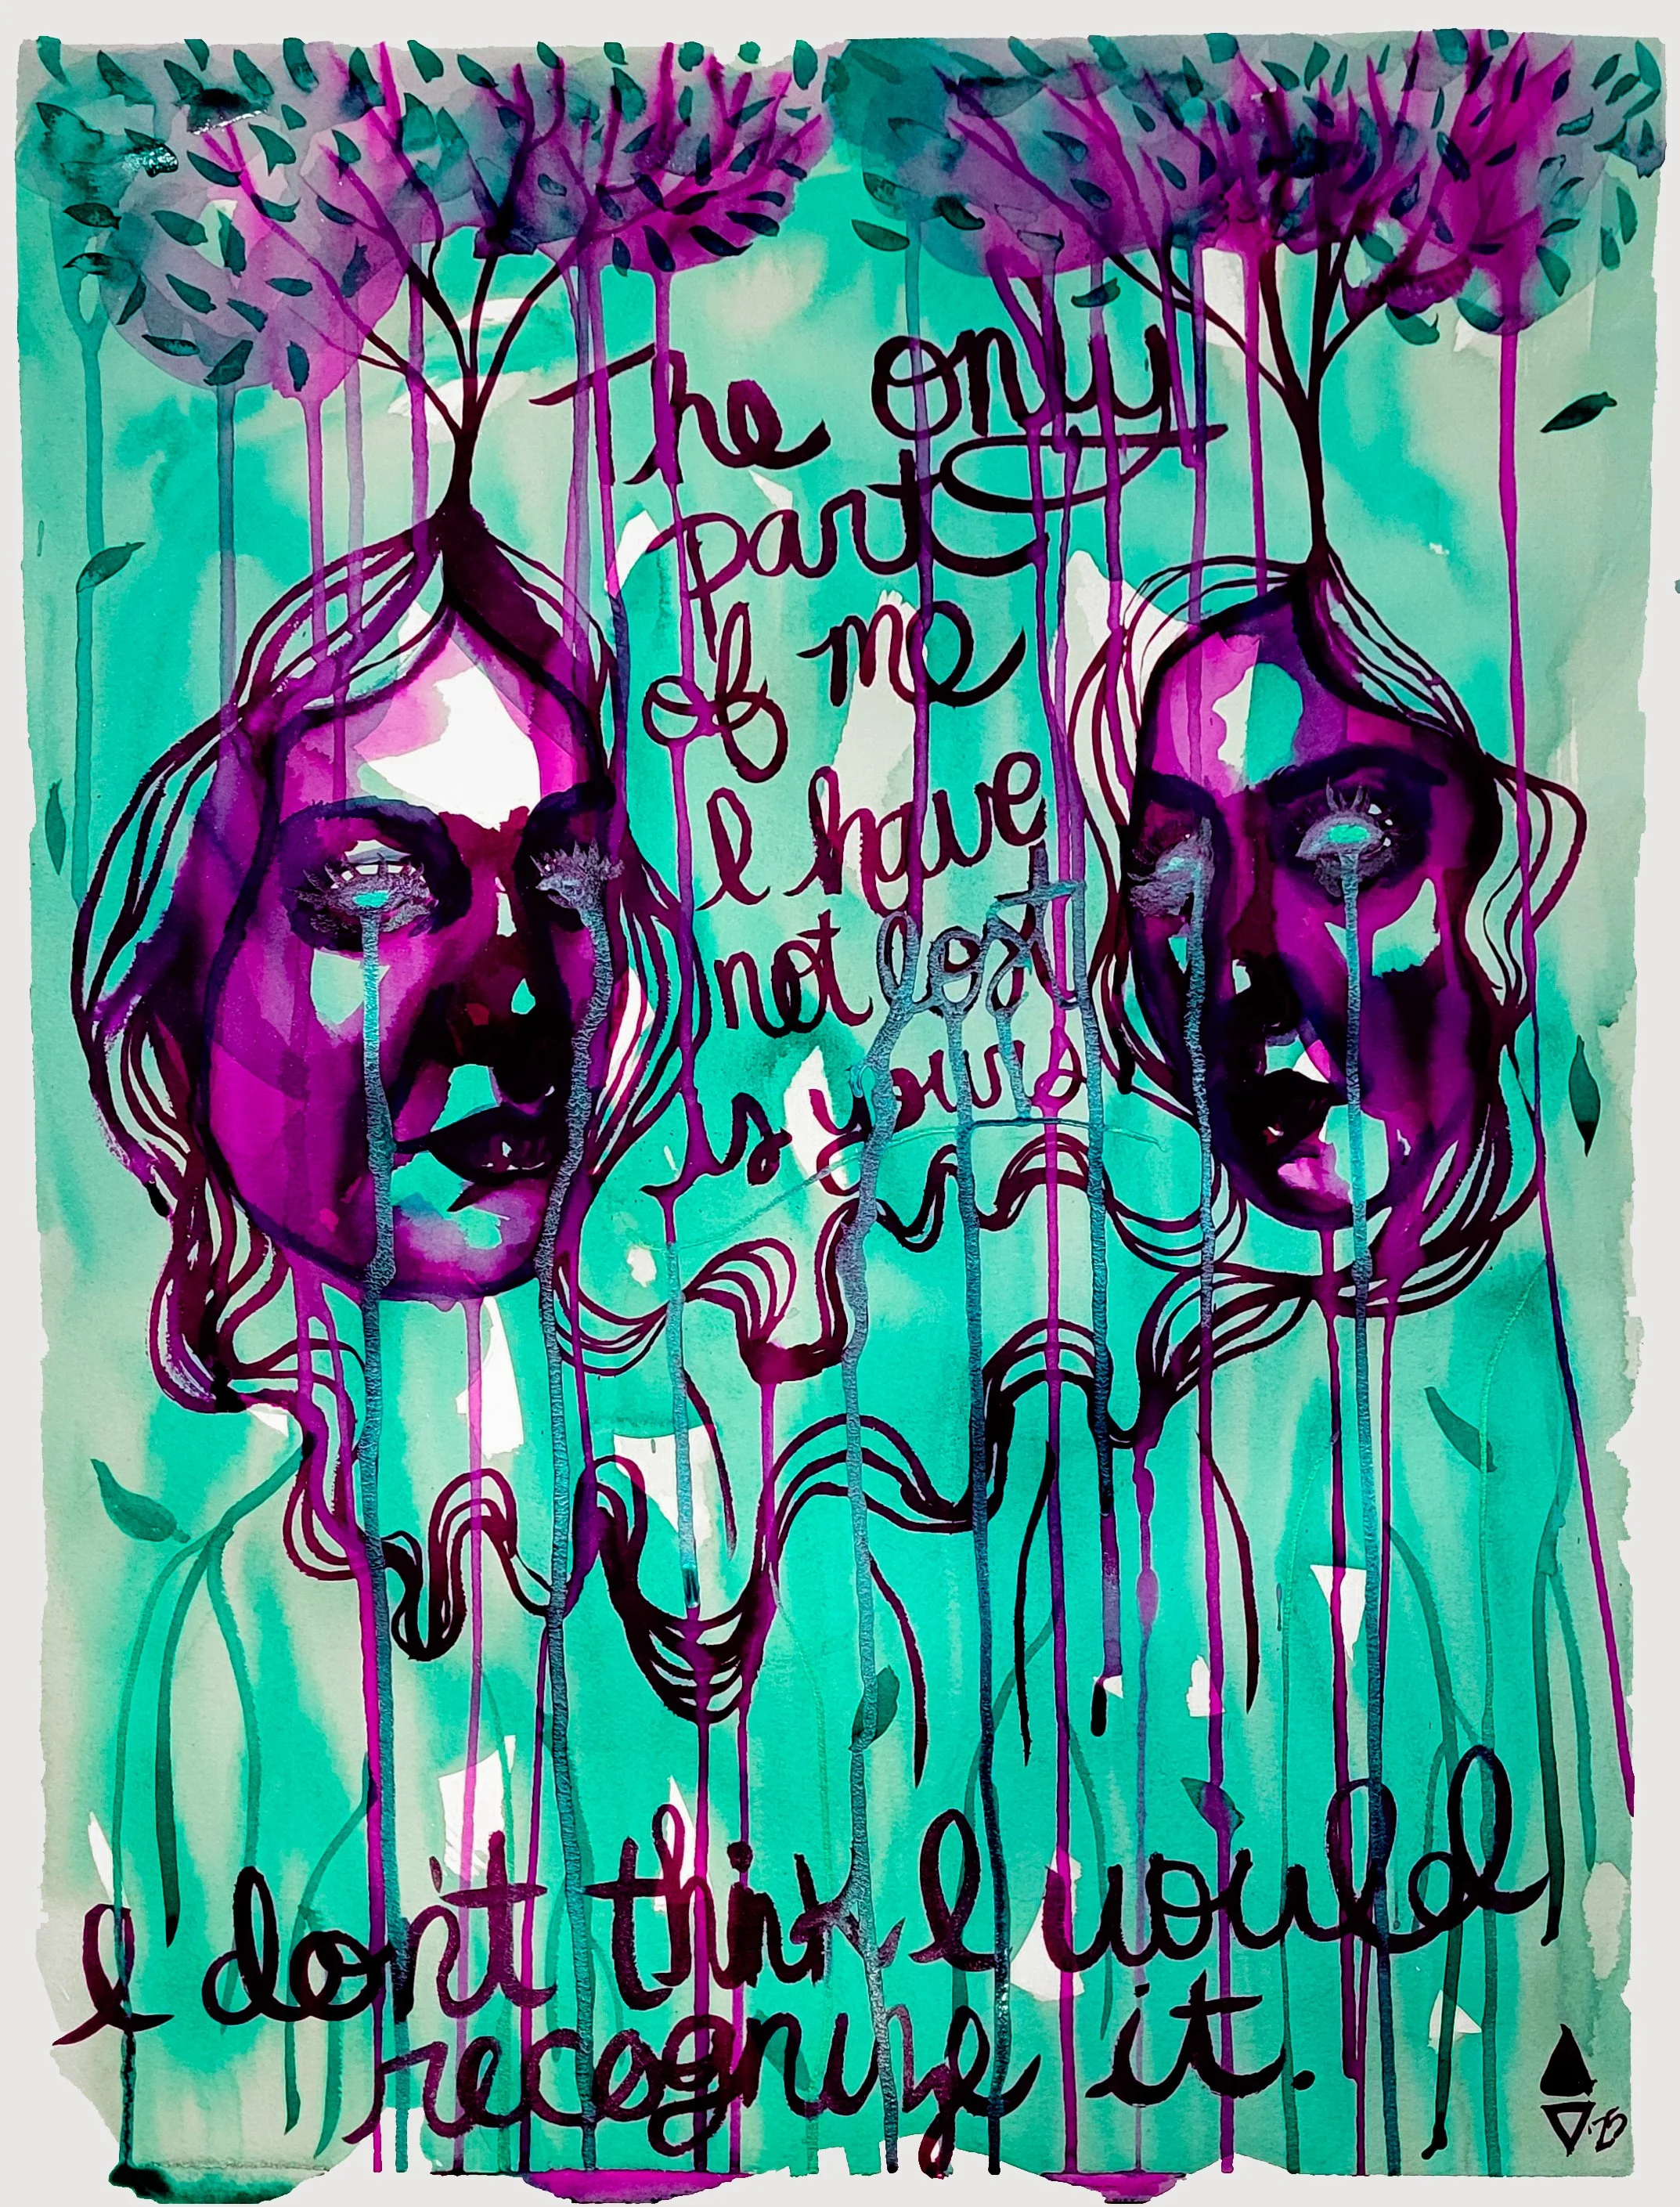 The only
part
of me
I have
not lost
is yours
I don't think I would
recognize it.
25